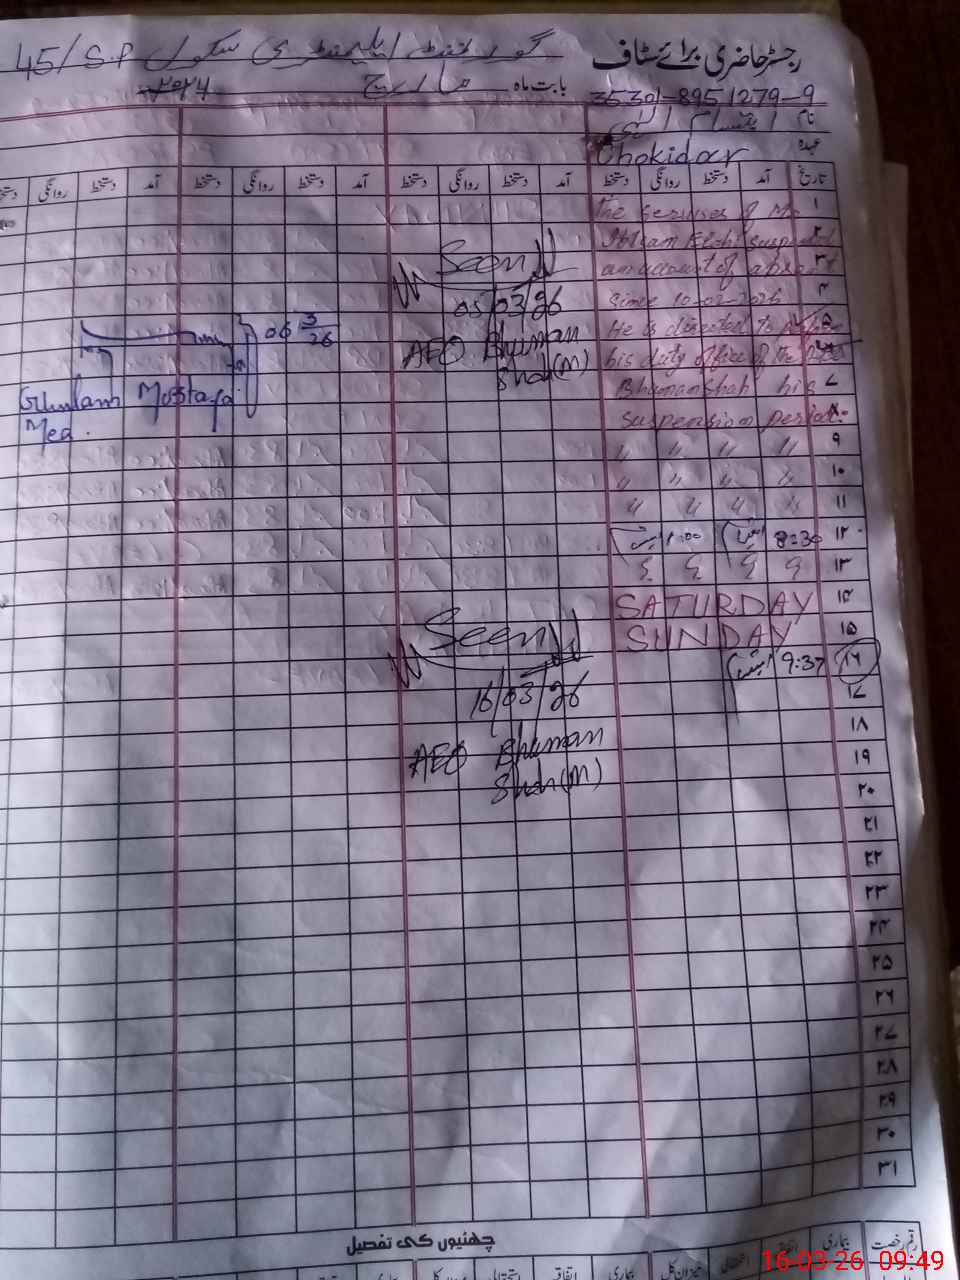 رجسٹر حاضری برائے سٹاف
گورنمنٹ ایلیمنٹری سکول 45/S.P
بابت ماہ مارچ
35301-8951279-9
نام
عہدہ Chokidar
تاریخ آمد دستخط روانگی دستخط آمد دستخط روانگی دستخط آمد دستخط روانگی دستخط آمد دستخط روانگی
۱ the services of Mr
۲ Ibtsam Elahi suspended
۳ on account of absent
۴ since 10-02-2026
۵ He is directed to perform
۶ his duty office of the
۷ Bhuman Shah his
۸ suspension period.
Seen
05/03/26
AEO Bhuman
Shah(M)
06 3/26
Ghulam Mustafa
Mea.
۹ " " " "
۱۰ " " " "
۱۱ " " " "
۱۲ 8:30 1:00
۱۳
۱۴ SATURDAY
۱۵ SUNDAY
۱۶ 9:37
Seen
16/03/26
AEO Bhuman
Shah(M)
۱۷
۱۸
۱۹
۲۰
۲۱
۲۲
۲۳
۲۴
۲۵
۲۶
۲۷
۲۸
۲۹
۳۰
۳۱
چھٹیوں کی تفصیل
رقم رخصت بیماری
16-03-26 09:49